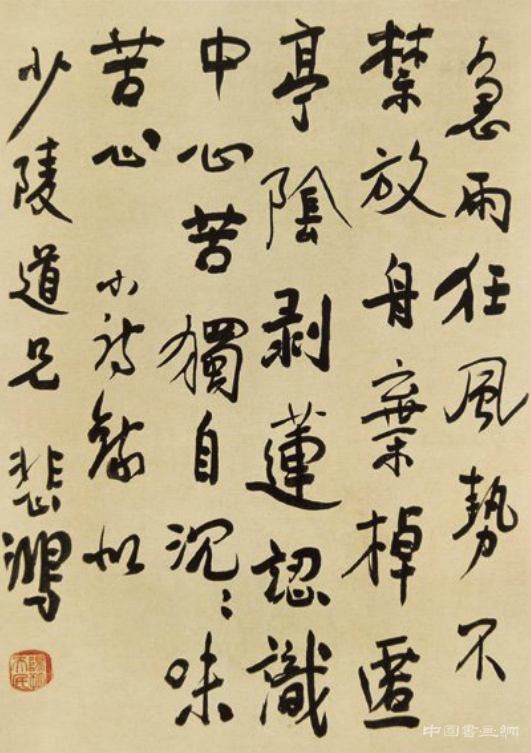 急雨狂風勢不
禁放舟棄棹匿
亭陰剥蓮認識
中心苦獨自沉〻味
苦心 小詩錄似
少陵道兄 悲鴻
中国書画網